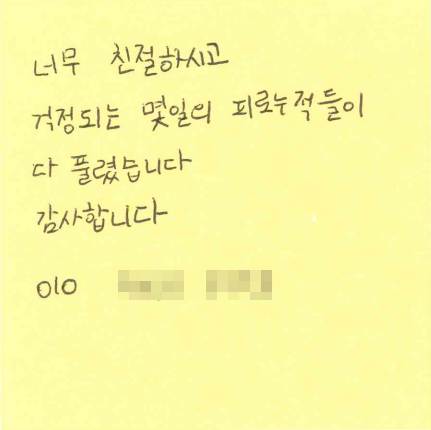 너무 친절하시고
걱정되는 몇일의 피로누적들이
다 풀렸습니다
감사합니다
010